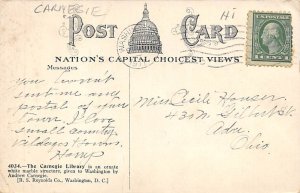 CARNEGIE
HI
POST CARD
NATION'S CAPITAL CHOICEST VIEWS
Messages
You haven't
sent me any
postal of your
town. I love
small country
villages. Yours,
Harry
Miss Cecile Houser
Ada,
Ohio
4024.—The Carnegie Library is an ornate
white marble structure, given to Washington by
Andrew Carnegie.
[B. S. Reynolds Co., Washington, D. C.]